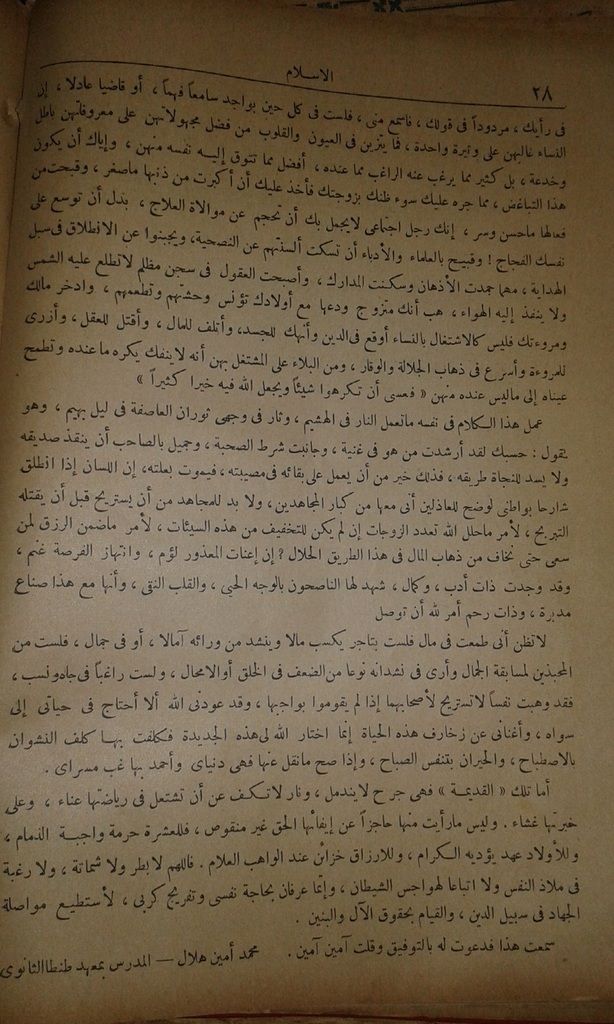 الاسلام
٢٨
فى رأيك ، مردوداً فى قولك ، فاسمع منى ، فلست فى كل حين بواجد سامعاً فهماً ، أو قاضيا عادلا ، إن
النساء غالبهن على وتيرة واحدة ، فما يتزين فى العيون والقلوب من فضل مجهولاتهن على معروفاتهن باطل
وخدعة ، بل كثير مما يرغب عنه الراغب مما عنده ، أفضل مما تتوق إليه نفسه منهن ، وإياك أن يكون
هذا التباغض ، مما جره عليك سوء ظنك بزوجتك فأخذ عليك أن أكبرت من ذنبها ماصغر ، وقبحت من
فعالها ماحسن وسر ، إنك رجل اجتماعى لايجمل بك أن تحجم عن موالاة العلاج ، بدل أن توسع على
نفسك الفجاج ! وقبيح بالعلماء والأدباء أن تسكت ألسنتهم عن النصحية، ويجبنوا عن الانطلاق فى سبل
الهداية ، مهما جمدت الأذهان وسكنت المدارك ، وأصبحت العقول فى سجن مظلم لاتطلع عليه الشمس
ولا ينفذ إليه الهواء ، هب أنك متزوج ودعها مع أولادك تؤنس وحشتهم وتطعمهم ، وادخر مالك
ومروءتك فليس كالاشتغال بالنساء أوقع فى الدين وأنهك للجسد، وأتلف للمال ، وأقتل للعقل ، وأزرى
للمروءة وأسرع فى ذهاب الجلالة والوقار ، ومن البلاء على المشتغل بهن أنه لا ينفك يكره ما عنده وتطمح
عيناه إلى ماليس عنده منهن « فعسى أن تكرهوا شيئاً ويجعل الله فيه خيرا كثيراً »
عمل هذا الكلام فى نفسه ماتعمل النار فى الهشيم ، وثار فى وجهى ثوران العاصفة فى ليل بهيم ، وهو
يقول : حسبك لقد أرشدت من هو فى غنية ، وجانبت شرط الصحبة ، وجميل بالصاحب أن ينقذ صديقه
ولا يسد للنجاة طريقه ، فذلك خير من أن يعمل على بقائه فى مصيبته ، فيموت بعلته، إن اللسان إذا انطلق
شارحا بواطنى لوضح للعاذلين أنى معها من كبار المجاهدين ، ولا بد للمجاهد من أن يستريح قبل أن يقتله
التبريح ، لأمر ماحلل الله تعدد الزوجات إن لم يكن للتخفيف من هذه السيئات ، لأمر ماضمن الرزق لمن
سعى حتى نخاف من ذهاب المال فى هذا الطريق الحلال ؟ إن إعنات المعذور لؤم ، وانتهاز الفرصة غنم ،
وقد وجدت ذات أدب ، وكمال ، شهد لها الناصحون بالوجه الحيى ، والقلب النقى ، وأنها مع هذا صناع
مدبرة ، وذات رحم أمر لله أن توصل
لاتظن أنى طمعت فى مال فلست بتاجر يكسب مالا وينشد من ورائه آمالا ، أو فى جمال ، فلست من
المحبذين لمسابقة الجمال وأرى فى نشدانه نوعا من الضعف فى الخلق أو الامحال ، ولست راغباً فى جاه ونسب ،
فقد وهبت نفساً لاتستريح لأصحابهما إذا لم يقوموا بواجبها ، وقد عودنى الله ألا أحتاج فى حياتى إلى
سواه ، وأغنانى عن زخارف هذه الحياة إنما اختار الله لى هذه الجديدة فكلفت بها كلف النشوان
بالاصطباح ، والحيران بتنفس الصباح ، وإذا صح مانقل عنها فهى دنياى وأحمد بها غب مسراى .
أما تلك « القديمة » فهى جرح لايندمل ، ونار لاتكف عن أن تشتعل فى رياضتها عناء ، وعلى
خبرتها غشاء . وليس مارأيت منها حاجزاً عن إيفائها الحق غير منقوص ، فللعشرة حرمة واجبة الذمام ،
وللأولاد عهد يؤديه الكرام ، وللارزاق خزائن عند الواهب العلام . فاللهم لابطر ولا شماتة ، ولا رغبة
فى ملاذ النفس ولا اتباعا لهواجس الشيطان ، وإنما عرفان بحاجة نفسى وتفريج كربى ، لأستطيع مواصلة
الجهاد فى سبيل الدين ، والقيام بحقوق الآل والبنين .
سمعت هذا فدعوت له بالتوفيق وقلت آمين آمين . محمد أمين هلال — المدرس بمعهد طنطا الثانوى